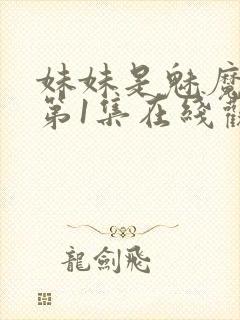 妹妹是魅魔
第1集在綫觀
龍劍飛